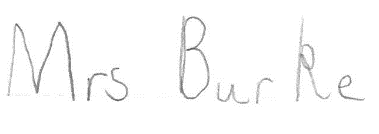 Mrs Burke